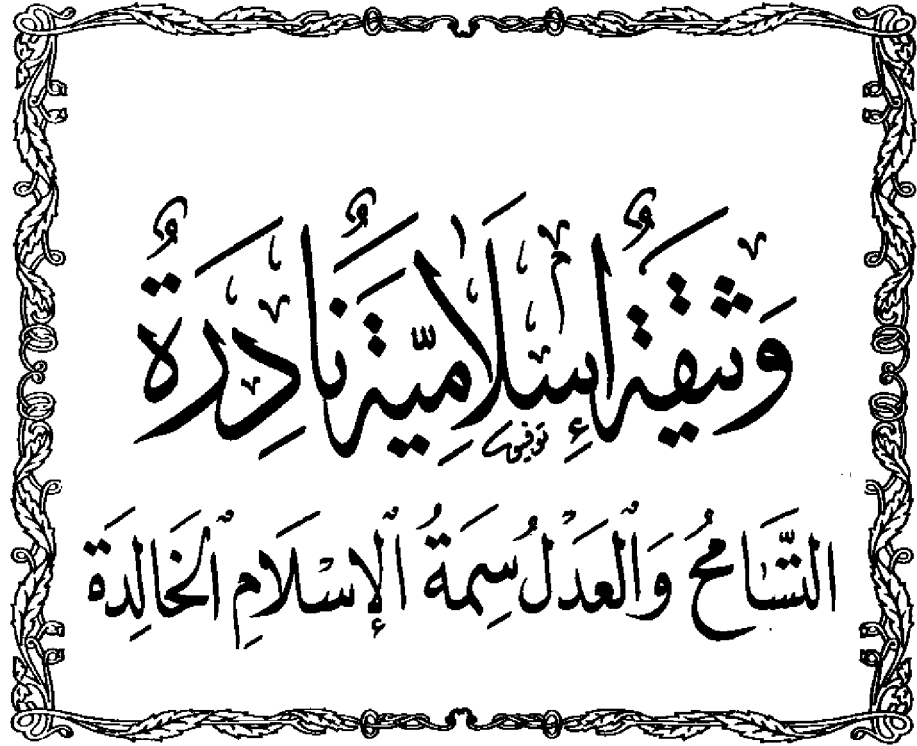 وَثِيقَةٌ إِسْلَامِيَّةٌ نَادِرَةٌ
توفيق
التَّسَامُحُ وَالْعَدْلُ سِمَةُ الْإِسْلَامِ الْخَالِدَةِ